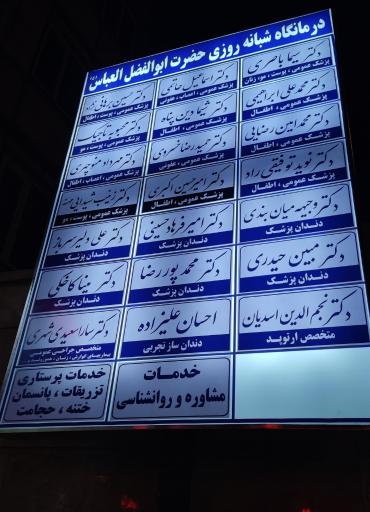 درمانگاه شبانه روزی حضرت ابوالفضل العباس (ع)
دکتر سیما باصری
پزشک عمومی ، پوست ، مو، زنان
دکتر اسماعیل حاتمی
پزشک عمومی ، اعصاب ، عفونی
دکتر حسین برهانی نژاد
پزشک عمومی ، پوست ، اطفال
دکتر محمدعلی ابراهیمی
پزشک عمومی ، اطفال
دکتر شیما دین پناه
پزشک عمومی ، اطفال
دکتر محبوبه
پزشک عمومی ، پوست ، مو
دکتر محمدامین رضایی
پزشک عمومی ، اطفال
دکتر حمیدرضا خسروی
پزشک عمومی ، عفونی
دکتر مهرداد منوچهری
پزشک عمومی ، اعصاب ، اطفال
دکتر نوید توفیقی راد
پزشک عمومی ، اطفال
دکتر امیرحسین اکبری
پزشک عمومی ، اطفال
دکتر زینب
پزشک عمومی ، پوست ، مو
دکتر وجیهه میان بندی
دندان پزشک
دکتر امیر فرهاد حسینی
دندان پزشک
دکتر علی دلیر سرباز
دندان پزشک
دکتر مبین حیدری
دندان پزشک
دکتر محمد پوررضا
دندان پزشک
دکتر مینا کاخکی
دندان پزشک
دکتر نجم الدین اسدیان
متخصص ارتوپد
احسان علیزاده
دندان ساز تجربی
دکتر سارا سعیدی
متخصص جراحی عمومی
بیماریهای گوارش ، زنان ،
خدمات
مشاوره و روانشناسی
خدمات پرستاری
تزریقات ، پانسمان
ختنه ، حجامت